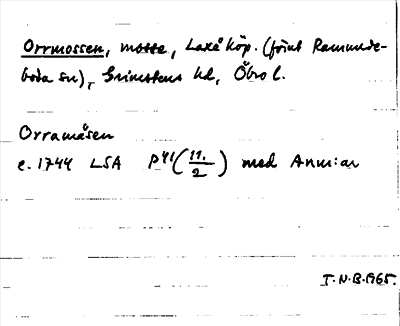 Orrmossen, mosse, Laxå köp. (förut Ramunde-
boda sn), Grimstens hd, Öbro l.
Orramåsen
c. 1744 LSA P41 (11./2) med Anm:ar
T.N.B. 1965.